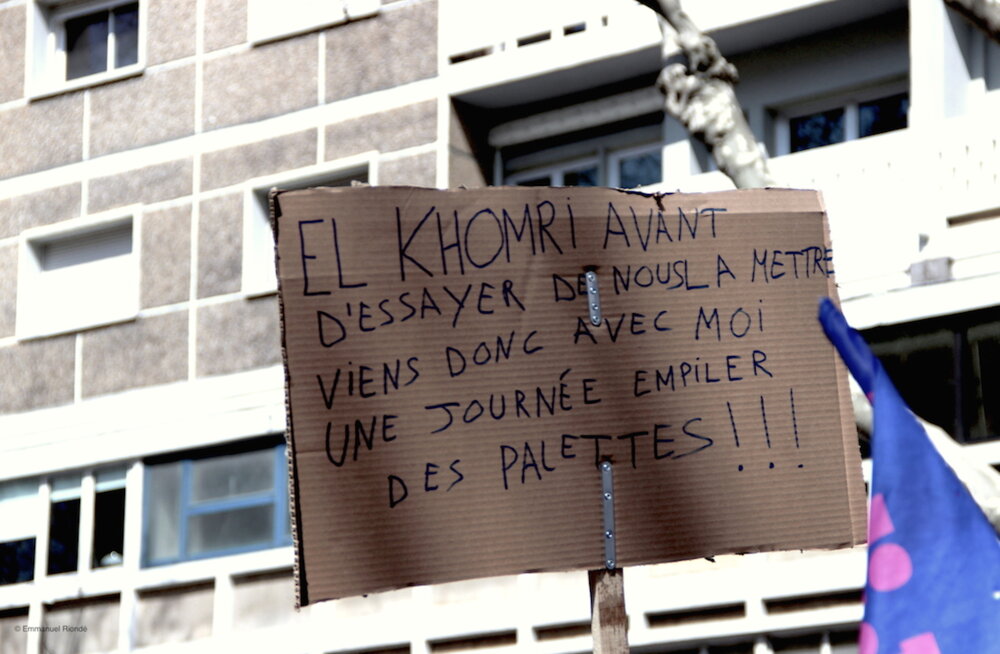 EL KHOMRi AVANT
D'ESSAYER DE NOUS LA METTRE
ViENS DONC AVEC MOi
UNE JOURNÉE EMPiLER
DES PALETTES!!!
© Emmanuel Riondé